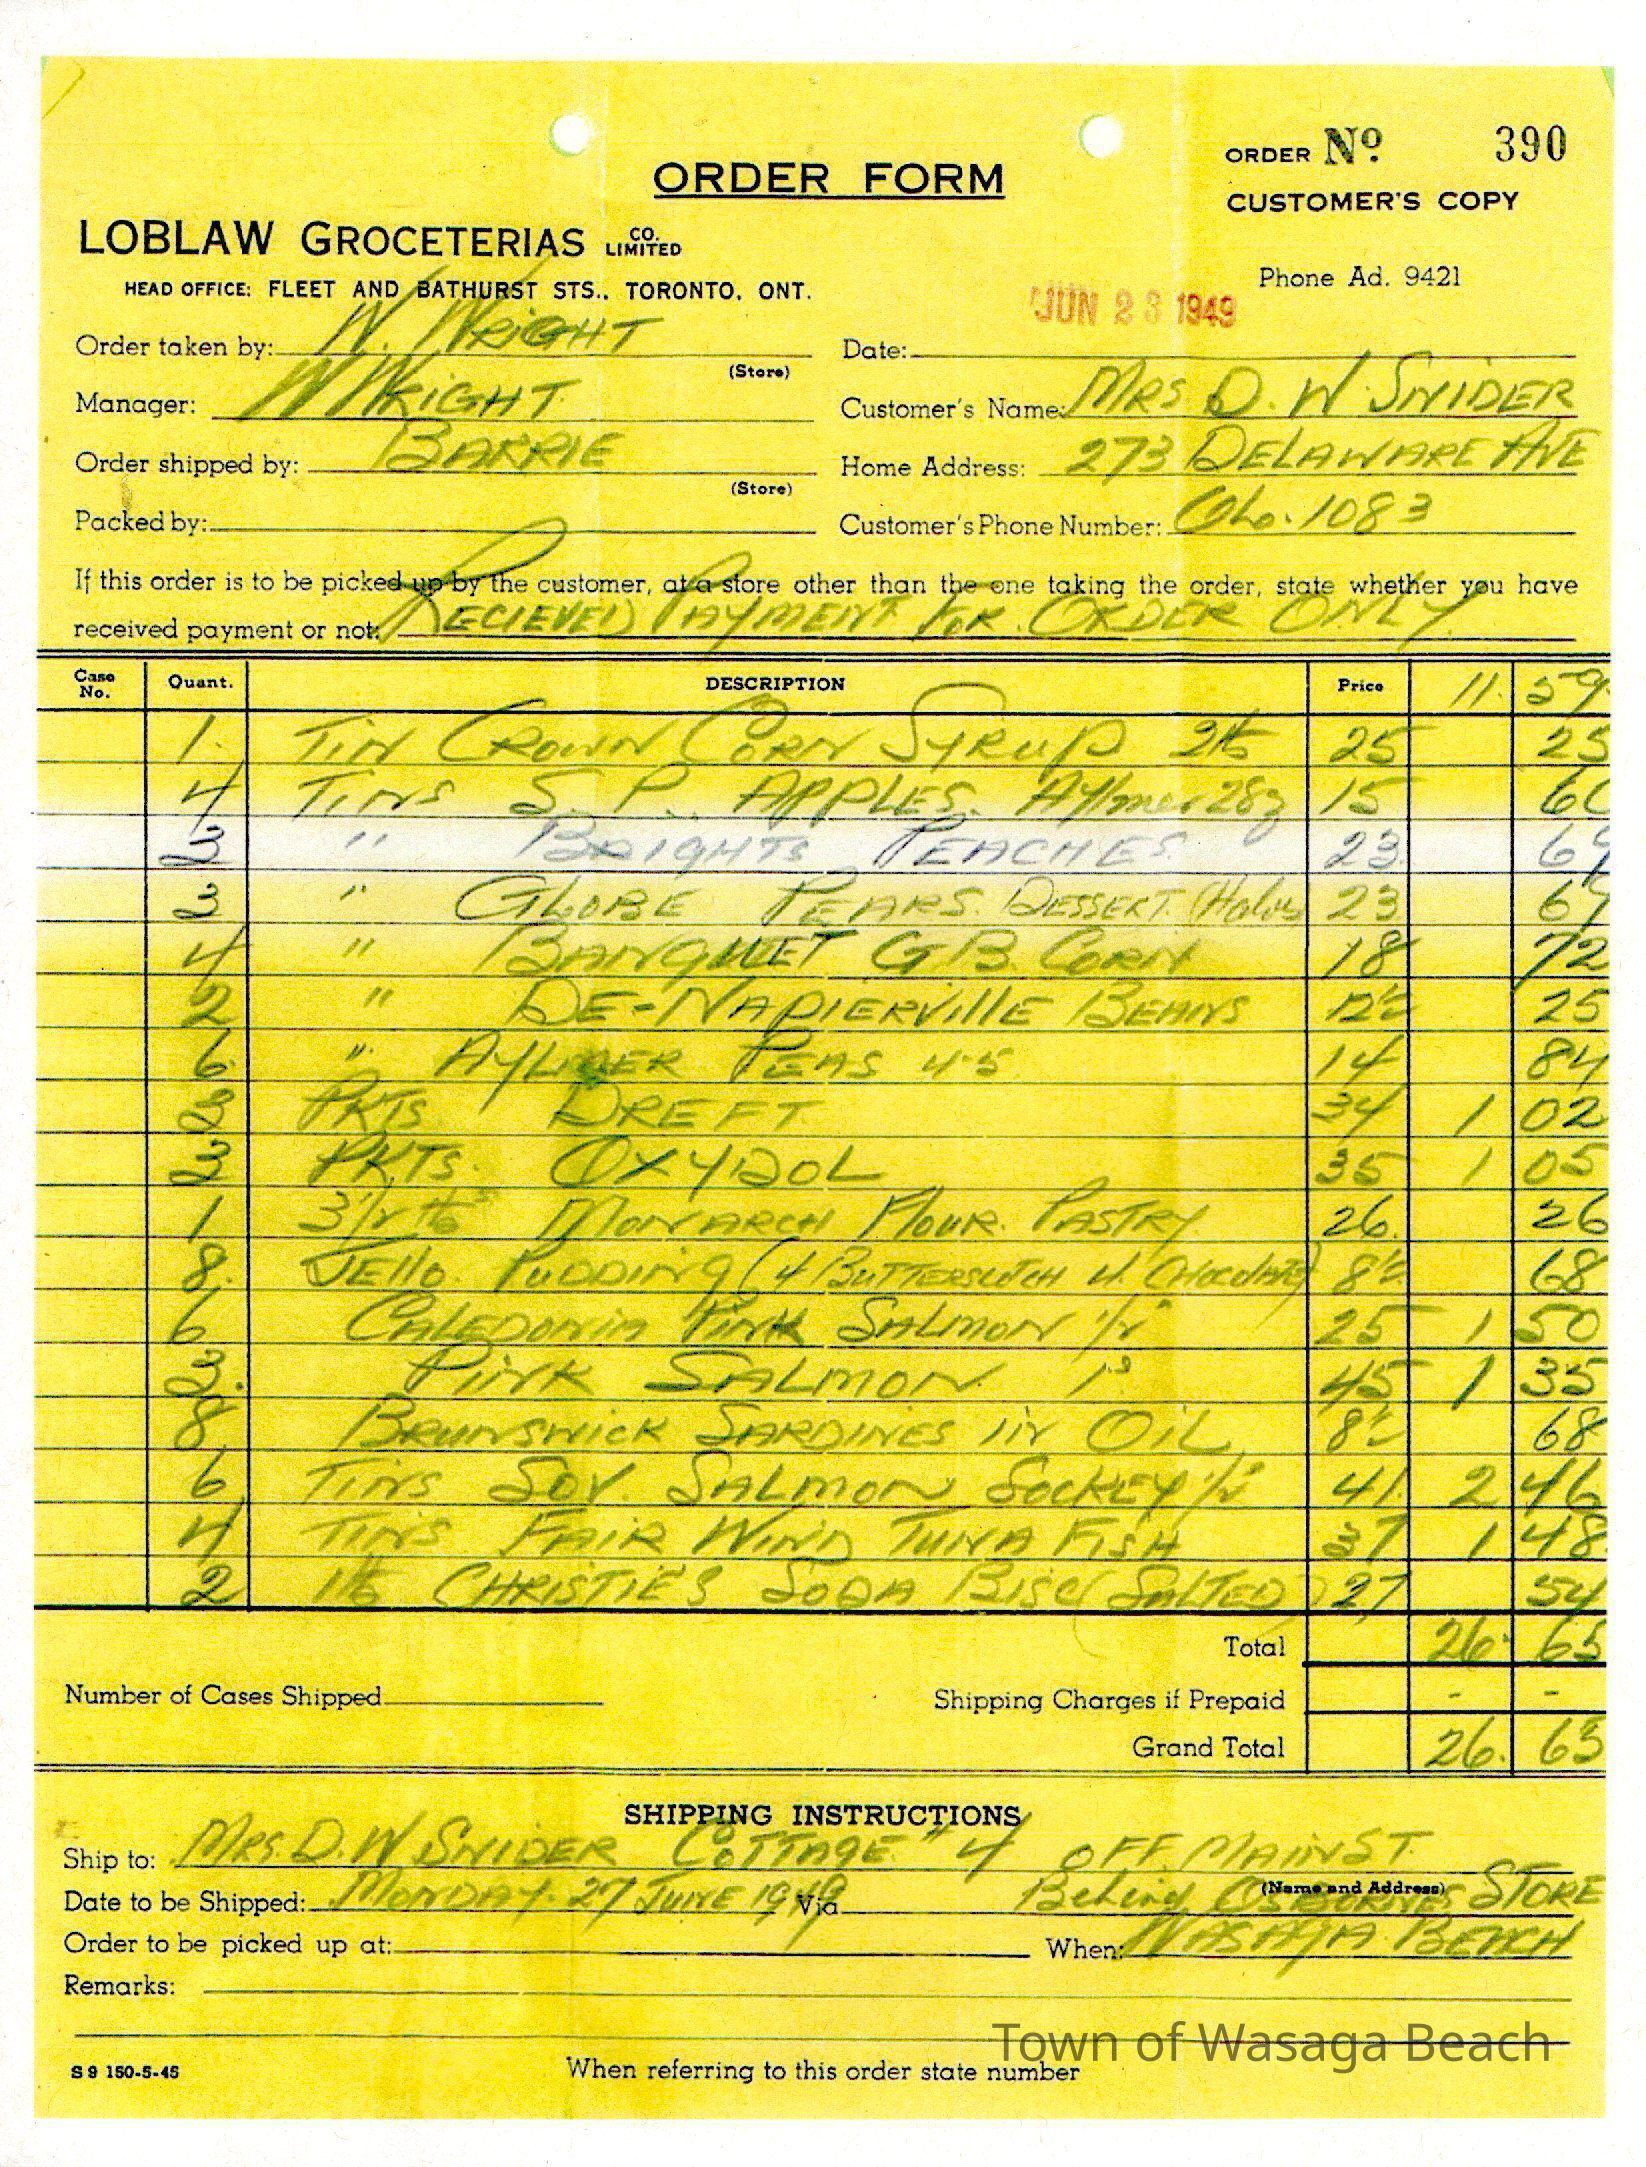 ORDER FORM
ORDER Nº 390
CUSTOMER'S COPY
LOBLAW GROCETERIAS CO. LIMITED
HEAD OFFICE: FLEET AND BATHURST STS., TORONTO, ONT.
Phone Ad. 9421
JUN 23 1949
Order taken by: W. WRIGHT
(Store)
Date:
Manager: W WRIGHT
Customer's Name: MRS D. W. SNIDER
Order shipped by: BARRIE
(Store)
Home Address: 273 DELAWARE AVE
Packed by:
Customer's Phone Number: 1083
If this order is to be picked up by the customer, at a store other than the one taking the order, state whether you have
received payment or not: RECIEVED PAYMENT FOR ORDER ONLY
Case No. Quant. DESCRIPTION Price 11. 59
1. TIN CROWN CORN SYRUP 2lb 25 25
4 TINS S. P. APPLES. Aylmer 28z 15 60
3 " BRIGHTS PEACHES. 23 69
3 " GLOBE PEARS. DESSERT. Halves 23 69
4 " BANQUET G.B. CORN 18 72
2 " DE-NAPIERVILLE BEANS 12½ 25
6. " AYLMER PEAS 4-5 14 84
3 PKTS DREFT 34 1 02
3 PKTS. OXYDOL 35 1 05
1 3½ lb MONARCH FLOUR. PASTRY 26. 26
8. JELLO. PUDDING (4 BUTTERSCOTCH 4. CHOCOLATE) 8½ 68
6 CALEDONIA PINK SALMON ½ 25 1 50
3. PINK SALMON. 1s 45 1 35
8 BRUNSWICK SARDINES IN OIL 8½ 68
6 TINS SOV. SALMON SOCKEY ½ 41. 2 46
4 TINS FAIR WIND TUNA FISH 37 1 48.
2 1lb CHRISTIE'S SODA BISC (SALTED) 27 54
Total 26. 65
Number of Cases Shipped
Shipping Charges if Prepaid - -
Grand Total 26. 65
SHIPPING INSTRUCTIONS
Ship to: MRS. D. W. SNIDER COTTAGE #4 OFF. MAIN ST.
(Name and Address)
Date to be Shipped: MONDAY. 27 JUNE 1949 Via Behind OSBOURNES STORE
Order to be picked up at: When: WASAGA BEACH
Remarks:
Town of Wasaga Beach
S 9 150-5-45
When referring to this order state number